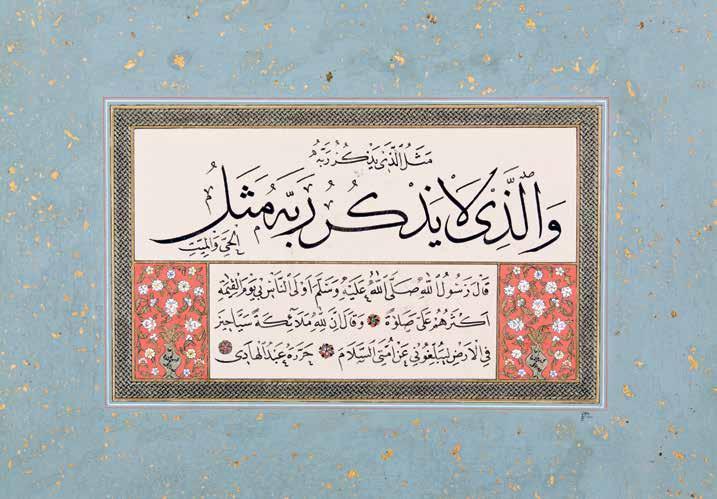 مَثَلُ الَّذِي يَذْكُرُ رَبَّهُ
وَالَّذِي لَا يَذْكُرُ رَبَّهُ مَثَلُ
الْحَيِّ وَالْمَيِّتِ
قَالَ رَسُولُ اللهِ صَلَّى اللهُ عَلَيْهِ وَسَلَّمَ اَوْلَى النَّاسِ بِي يَوْمَ الْقِيٰمَةِ
اَكْثَرُهُمْ عَلَيَّ صَلٰوةً وَقَالَ اِنَّ لِلّٰهِ مَلَائِكَةً سَيَّاحِينَ
فِي الْاَرْضِ يُبَلِّغُونِي عَنْ اُمَّتِي السَّلَامَ حَرَّرَهُ عَبْدُ الْهَادِي